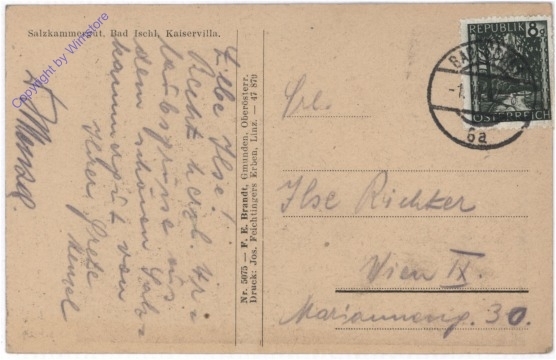 Salzkammergut, Bad Ischl, Kaiservilla.
Copyright by Winstore
Liebe Ilse!
Recht herzl. Ur-
laubsgrüsse aus
dem schönen Salz-
kammergut von
Ihrer Grete
Menzel
Menzel
Nr. 5075 — F. E. Brandt, Gmunden, Oberösterr.
Druck: Jos. Feichtingers Erben, Linz. — 47 879
REPUBLIK
8g
ÖSTERREICH
BAD
6a
Frl.
Ilse Richter
Wien IX.
Marianneng. 30.